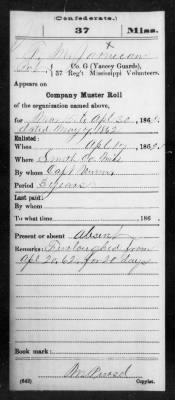 (Confederate.)
37 Miss.
Co. G (Yancey Guards),
37 Reg't Mississippi Volunteers.
Appears on
Company Muster Roll
of the organization named above,
for to Apl. 30, 186
dated May 1862
Enlisted:
When Apl. 10, 186
Where Smith Co. Miss
By whom Capt.
Period 3 years
Last paid:
By whom
To what time , 186
Present or absent Absent
Remarks: Furloughed from
Apl 20, 62, for 20 days
Book mark:
(642) Copyist.